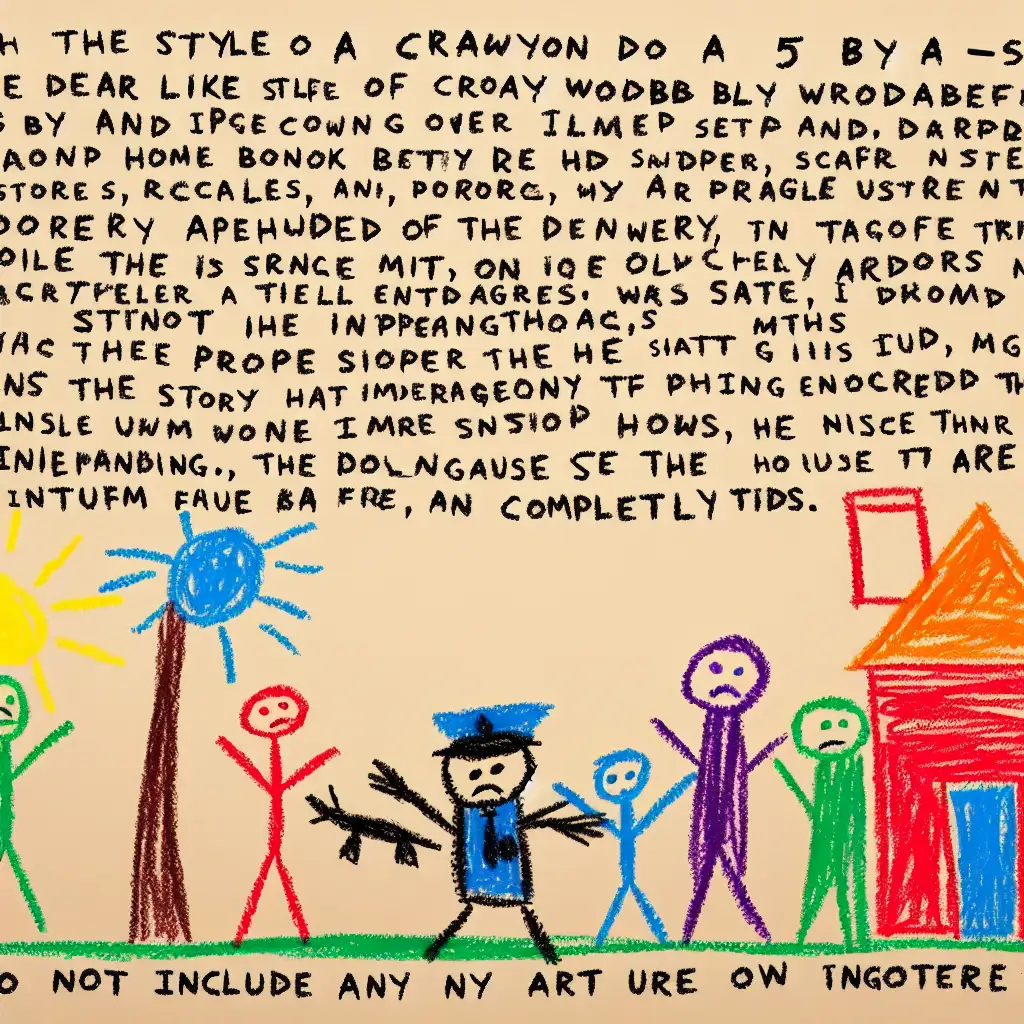 H THE STYLE O A CRAWYON DO A 5 BY A -S
E DEAR LIKE STLFE OF CROAY WODBB BLY WRODABEF
BY AND IPGE COWNG OVER ILMED SETP AND. DARPD
AOND HOME BONOK BETTY RE HD SNDPER, SCAFR NSTE
STORES, RCCALES, ANI, PORORG, WY AR PRAGLE USTRENT
OORERY APEHUDED OF THE DENWERY, TN TAGOFE TRI
OILE THE IS SRNGE MIT, ON IOE OLV CHELY ARDORS
ACRTPELER A TIELL ENTDAGRES. WAS SATE, I DKOMD
STTNOT IHE INPPEANGTHOAC,S MTHS
AC THEE PROPE SIOPER THE HE SIATT G IIIS IUD, MG
NS THE STORY HAT IMDERAGEONY TF PHING ENOCREDD TH
INSLE UWM WONE IMRE SNSIOP HOWS, HE NISCE THNR
INIEPANDING., THE DOLNGAUSE SE THE HOIUSE TT ARE
INTUFM FAUE BA FRE, AN COMPLETLY TIDS.
O NOT INCLUDE ANY NY ART URE OW TNGOTERE